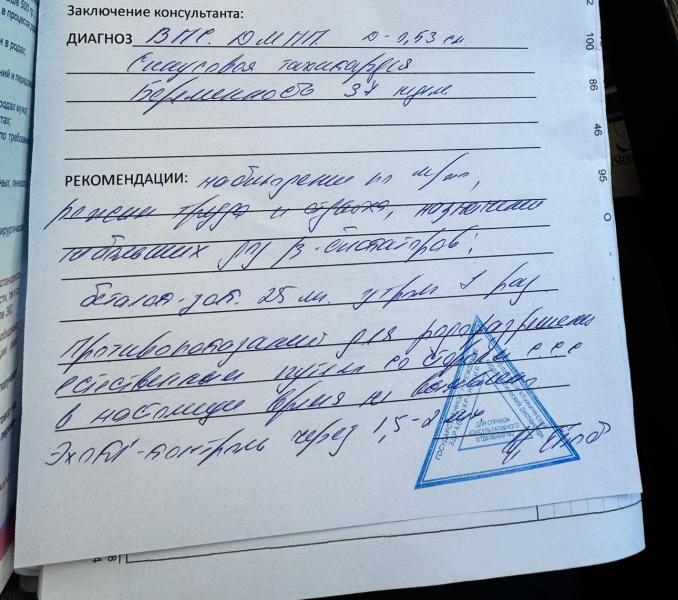 Заключение консультанта:
ДИАГНОЗ ВПС. ДМПП. D-0,53 см.
Синусовая тахикардия.
Беременность 37 нед
РЕКОМЕНДАЦИИ: наблюдение по м/ж,
режим труда и отдыха, назначение
небольших доз β-блокаторов:
беталок-зок 25 мг утром 1 раз
Противопоказаний для родоразрешения
естественным путем со стороны ССС
в настоящее время не выявлено
ЭхоКГ-контроль через 1,5-2 мес
ДЛЯ СПРАВОК
КОНСУЛЬТАТИВНОГО
ОТДЕЛЕНИЯ
100
86
46
95
0